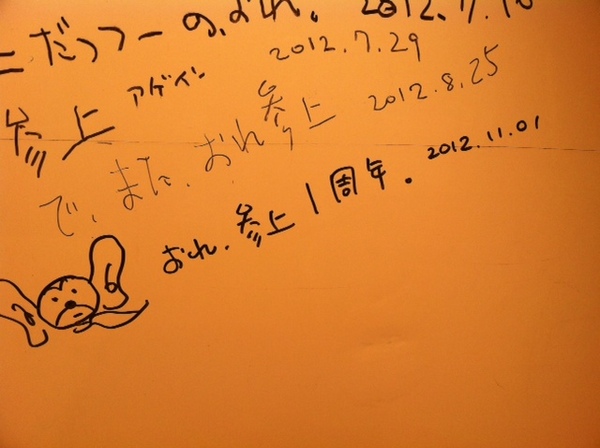 こだっフーの、おれ。 2012.7.10
参上 アゲイン 2012.7.29
で、また、おれ参上 2012.8.25
おれ、参上1周年。 2012.11.01